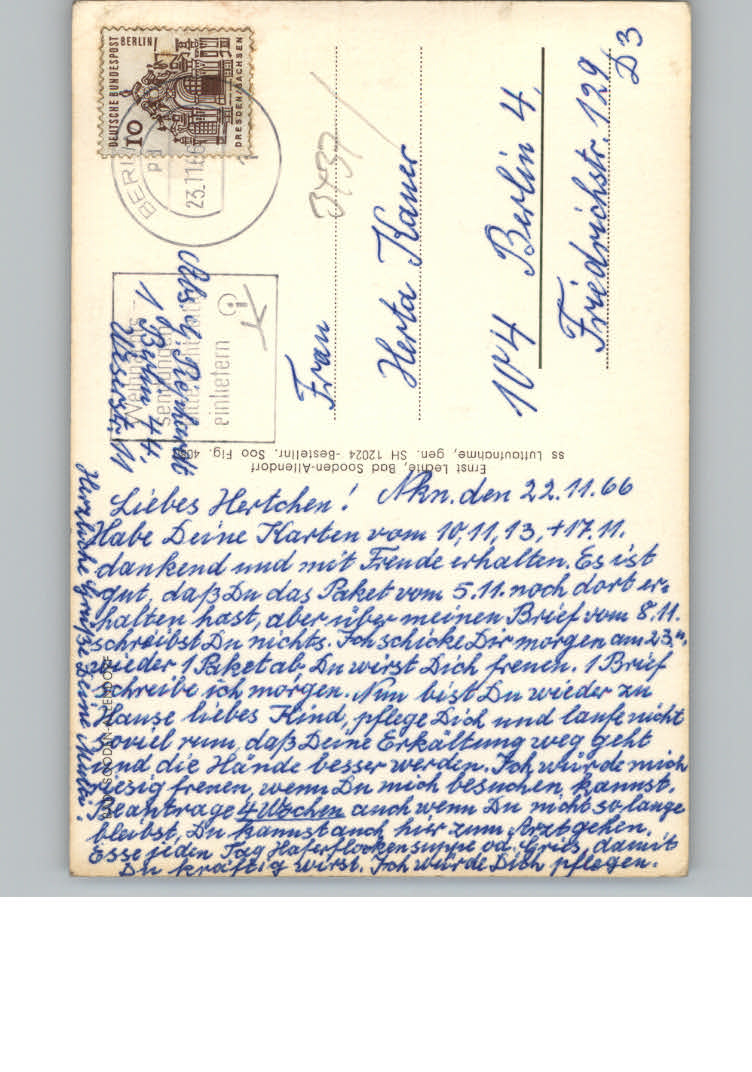 DEUTSCHE BUNDESPOST
BERLIN
10
DRESDEN/SACHSEN
BERLIN
23.11.66
Weihnachts-
sendungen
einliefern
3437
Frau
Herta Kauer
104 Berlin 4,
Friedrichstr. 129
D3
1 Berlin 44,
Weserstr. 11
Ernst Lechte, Bad Sooden-Allendorf
ss Luftaufnahme, gen. SH 12024 -Bestellnr. Soo Flg.
BAD SOODEN-ALLENDORF
Liebes Hertchen! Nkn. den 22.11.66
Habe Deine Karten vom 10, 11, 13, + 17. 11.
dankend und mit Freude erhalten. Es ist
gut, daß Du das Paket vom 5.11. noch dort er-
halten hast, aber über meinen Brief vom 8.11.
schreibst Du nichts. Ich schicke Dir morgen am 23ⁿ,
wieder 1 Paket ab Du wirst Dich freuen. 1 Brief
schreibe ich morgen. Nun bist Du wieder zu
Hause liebes Kind, pflege Dich und laufe nicht
soviel rum, daß Deine Erkältung weg geht
und die Hände besser werden. Ich würde mich
riesig freuen, wenn Du mich besuchen kannst.
Beantrage 4 Wochen auch wenn Du nicht so lange
bleibst, Du kannst auch hier zum Arzt gehen.
Esse jeden Tag Haferflockensuppe od. Gries, damit
Du kräftig wirst. Ich würde Dich pflegen.
Herzliche Grüße Deine Mutti!